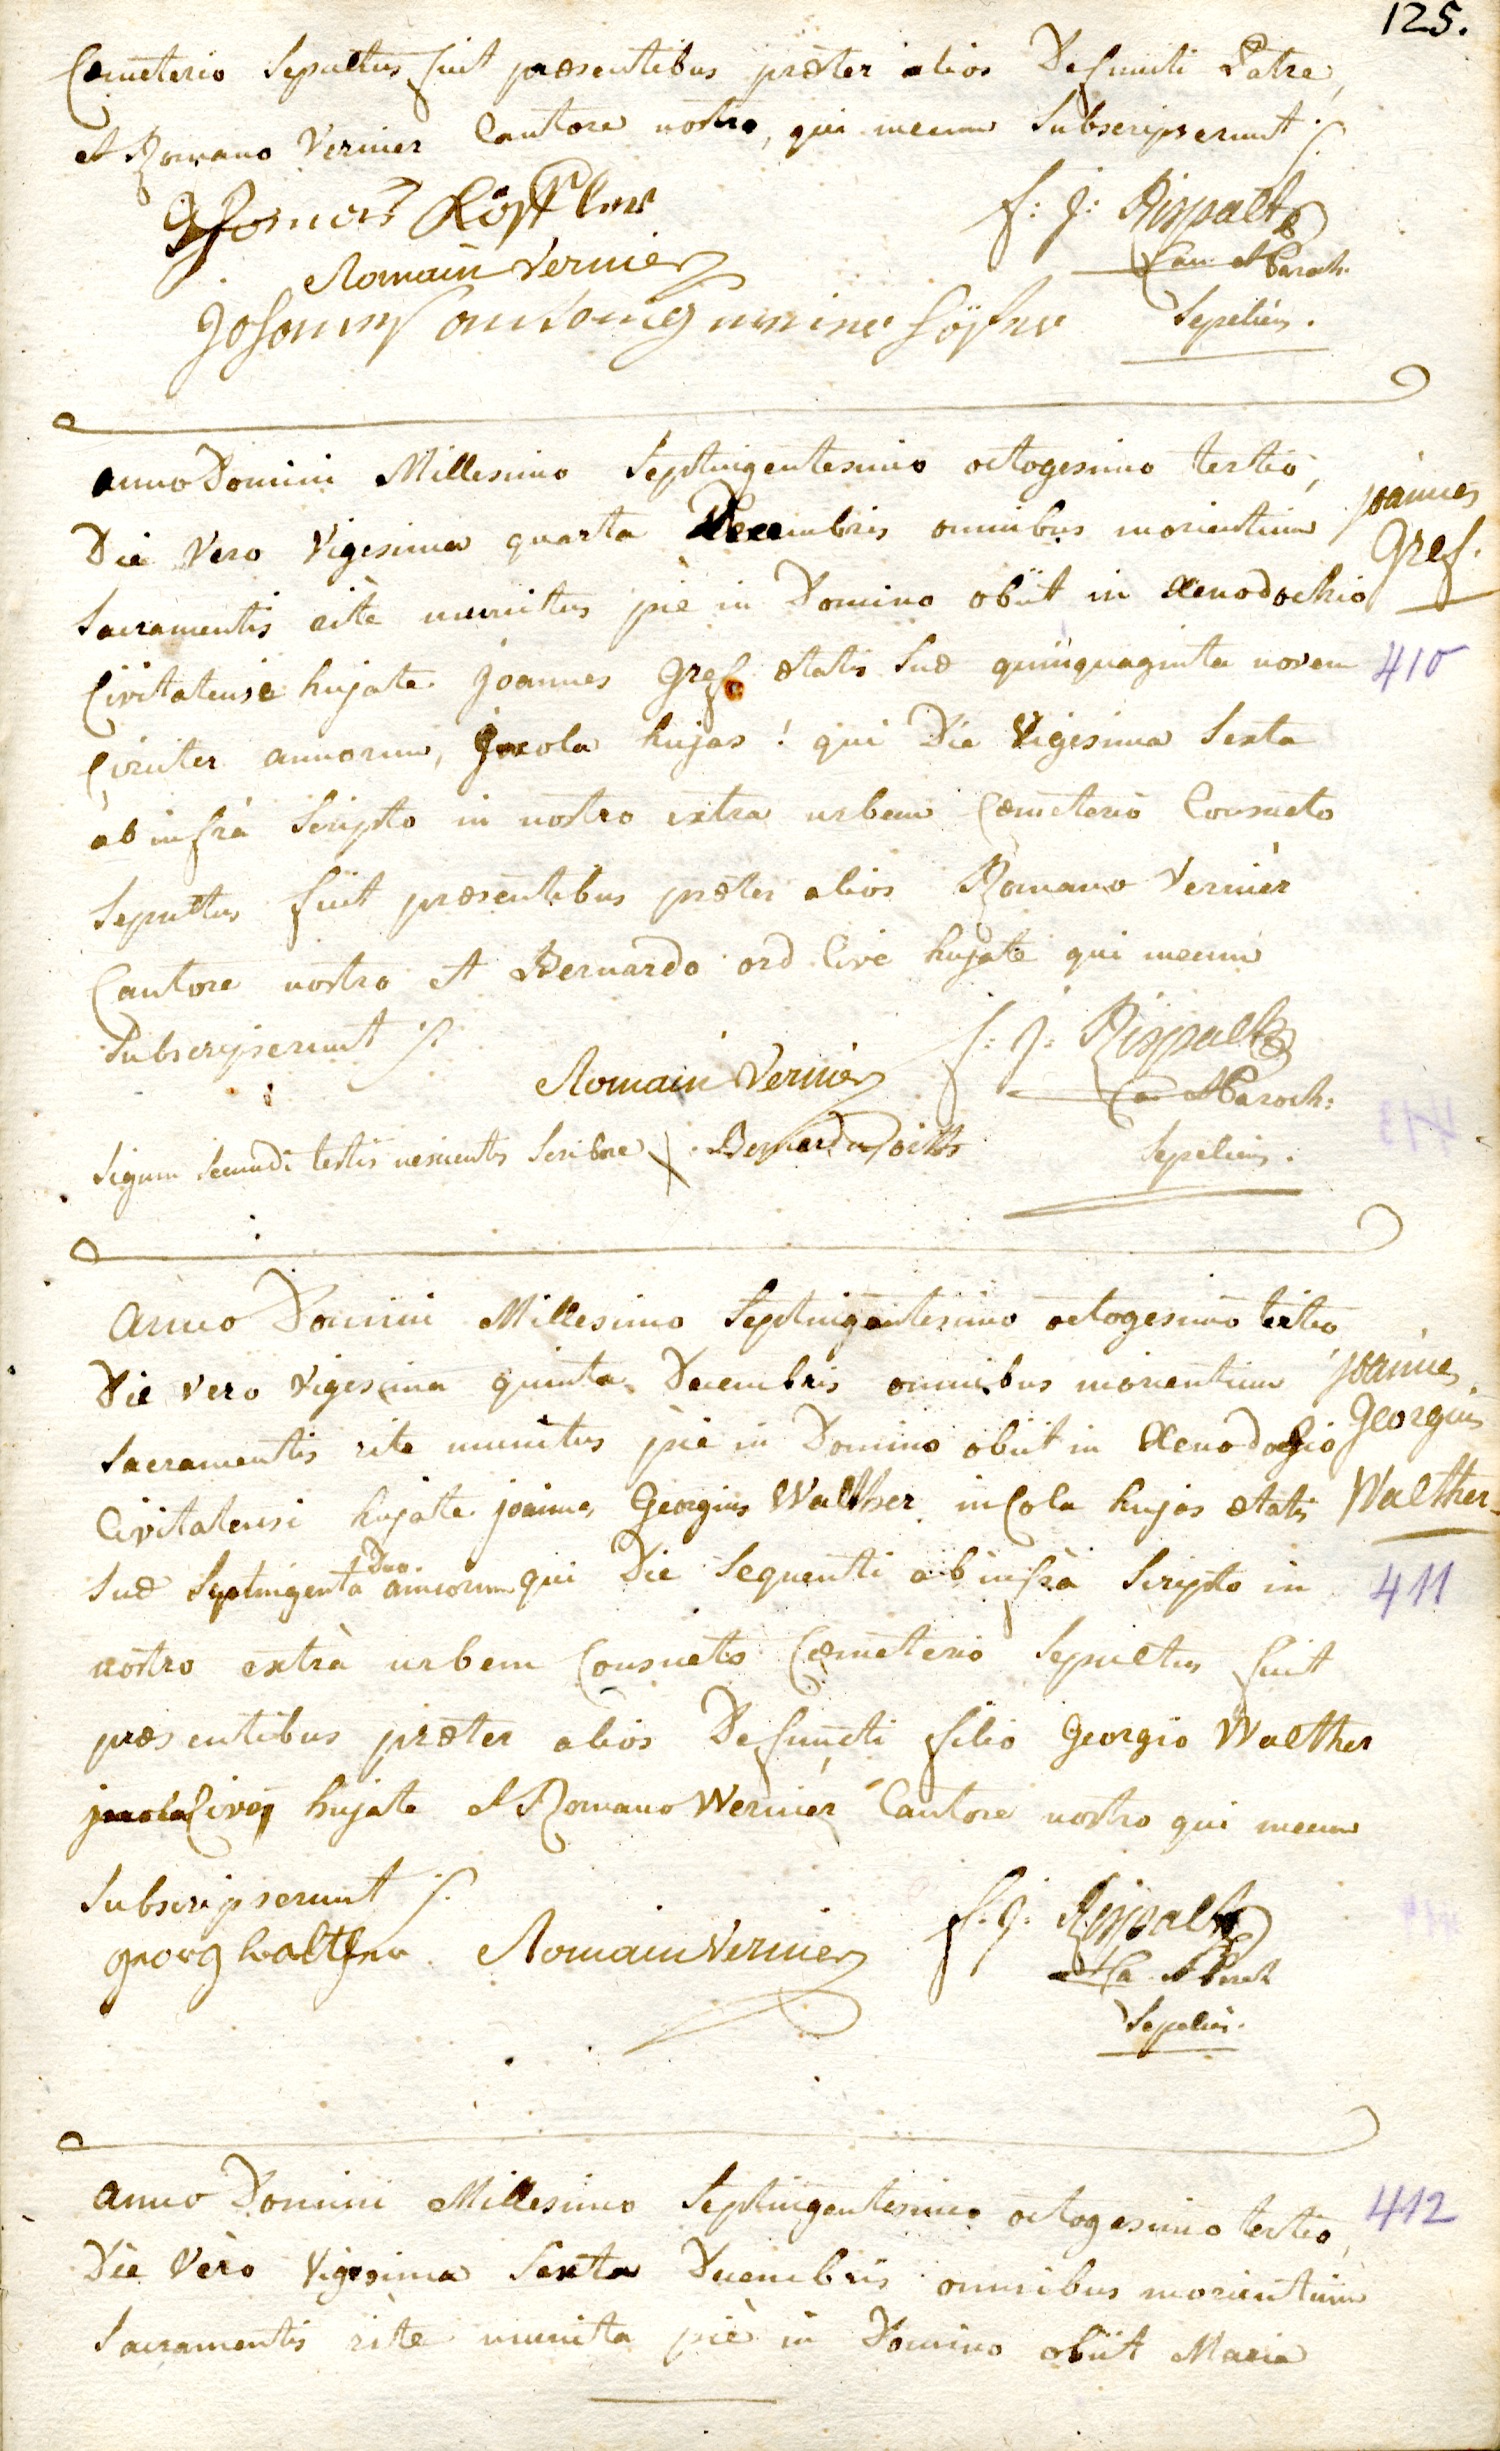 125.
Cœmeterio Sepultus fuit præsentibus præter alios Defuncti Patre,
et Romano Vernier Cantore nostro, qui mecum Subscripserunt
f: J: Rispalt
Romain Vernier
Can et Paroch.
Sepeliens.
Anno Domini Millesimo Septingentesimo octogesimo tertio,
Die Vero Vigesima quarta Decembris omnibus morientium
Joannes
Gref.
Sacramentis ritè munitus piè in Domino obiit in Xenodochio
Civitatensi hujate Joannes Gref ætatis Suæ quinquaginta novem
410
Circiter annorum, Jncola hujas ! qui Die Vigesima Sexta
ab infrà Scripto in nostro extra urbem Cœmeterio Consueto
Sepultus fuit præsentibus præter alios Romano Vernier
Cantore nostro et Bernardo ord Cive hujate qui mecum
Subscripserunt
f: J: Rispalt
Romain Vernier
Ca et Paroch:
Signum Secundi testis nescientis Scribere X Bernard
Sepeliens.
Anno Domini Millesimo Septingentesimo octogesimo tertio
Die vero Vigesima quinta Decembris omnibus morientium
Joannes
Georgius
Walther
Sacramentis rite munitus piè in Domino obiit in Xenodochio
Civitatensi hujate joannes Georgius Walther incola hujas ætatis
Suæ Septuigenta Duo. annorum qui Die Sequenti ab infrà Scripto in
411
nostro extrà urbem Consueto Cœmeterio Sepultus fuit
præsentibus præter alios Defuncti filio Georgio Walther
Cive hujate et Romano Wernier Cantore nostro qui mecum
Subscripserunt
georg walther
Romain Vernier
f. J. Rispalt
Ca et Paroch
Sepeliens.
Anno Domini Millesimo Septingentesimo octogesimo tertio,
412
Die Vèro Vigesima Sexta Decembris omnibus morientium
Sacramentis rìte munita piè in Domino obiit Maria